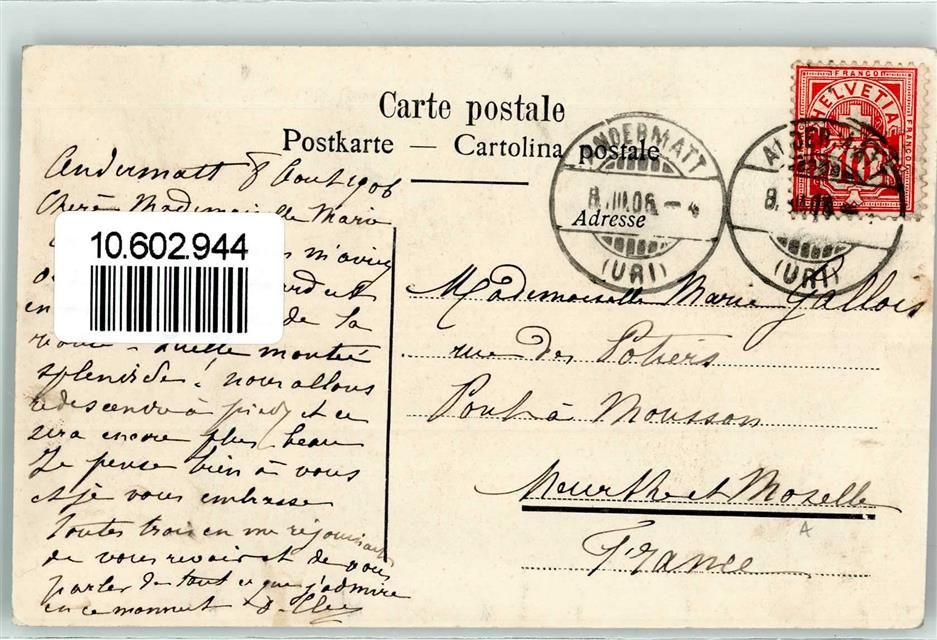 Carte postale
Postkarte — Cartolina postale
Adresse
FRANCO
HELVETIA
FRANCO
10
ANDERMATT
8.III.06.-4
(URI)
ANDERMATT
8.
(URI)
10.602.944
Andermatt 8 Aout 1906
Chère Mademoiselle Marie
m'avez
de la
route - Quelle montée
splendide! nous allons
redescendre à pied et ce
sera encore plus beau
Je pense bien à vous
et je vous embrasse
Toutes trois en me réjouissant
de vous revoir et de vous
parler de tout ce que j'admire
en ce moment
Mademoiselle Marie Gallois
rue des Potiers
Pont à Mousson
Meurthe et Moselle
France